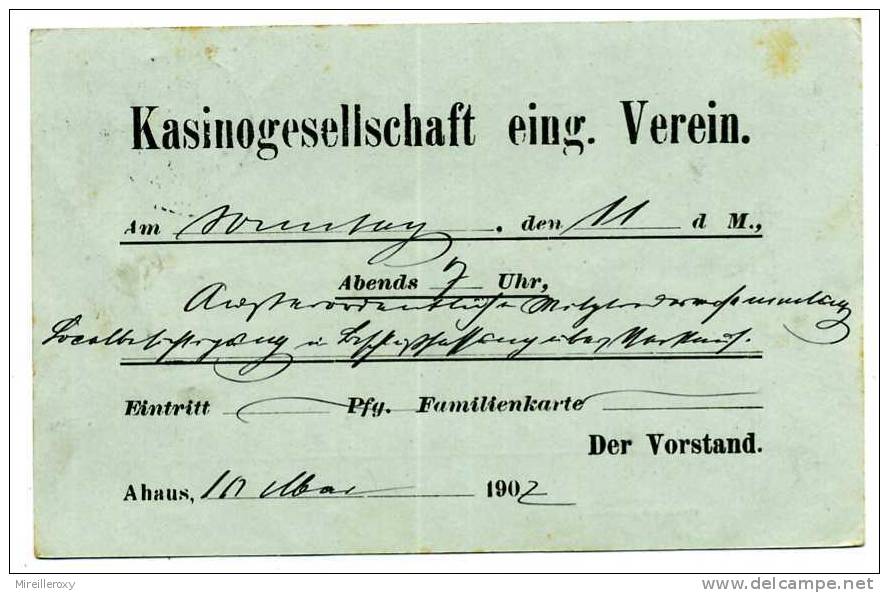 Kasinogesellschaft eing. Verein.
Am Sonntag, den 11 d M.,
Abends 7 Uhr,
Ausserordentliche Mitgliederversammlung
Localbesichtigung u Beschlussfassung über Verkauf.
Eintritt Pfg. Familienkarte
Der Vorstand.
Ahaus, 10 Mai 1907
Mireilleroxy
delcampe.net